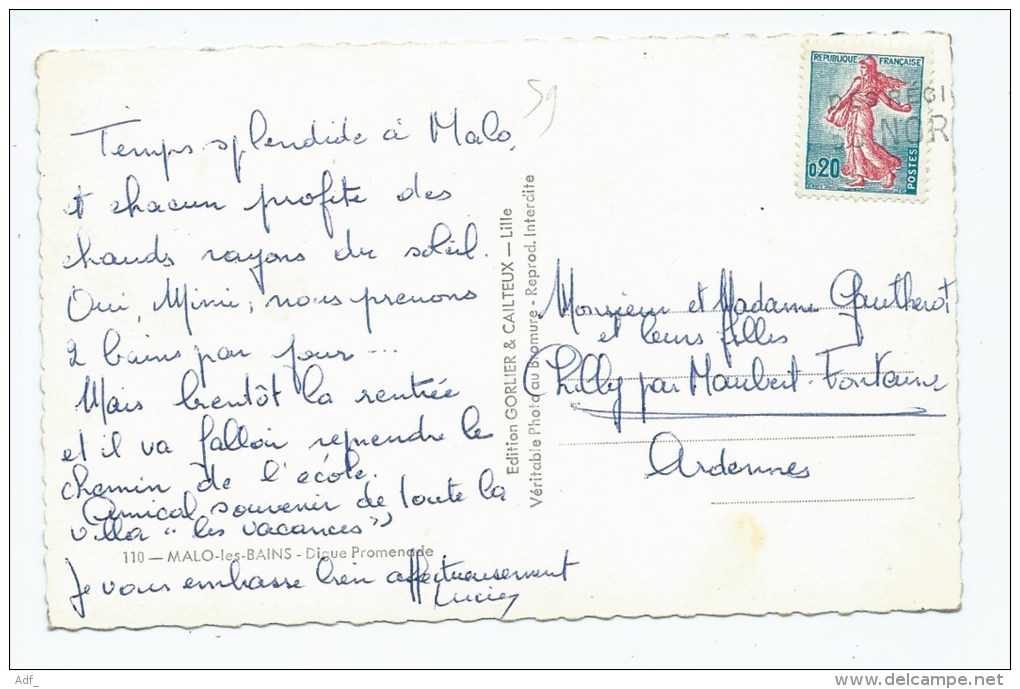 Temps splendide à Malo,
et chacun profite des
chauds rayons du soleil.
Oui, Mimi, nous prenons
2 bains par jour ...
Mais bientôt la rentrée
et il va falloir reprendre le
chemin de l'école.
Amical souvenir de toute la
villa "les vacances"
110 — MALO-les-BAINS - Digue Promenade
Je vous embrasse bien affectueusement
Lucien
59
Edition GORLIER & CAILTEUX — Lille
Véritable Photo au Bromure - Reprod. Interdite
REPUBLIQUE FRANÇAISE
0,20
POSTES
Monsieur et Madame Gautherot
et leurs filles
Chilly par Maubert-Fontaine
Ardennes
Adf_
www.delcampe.net